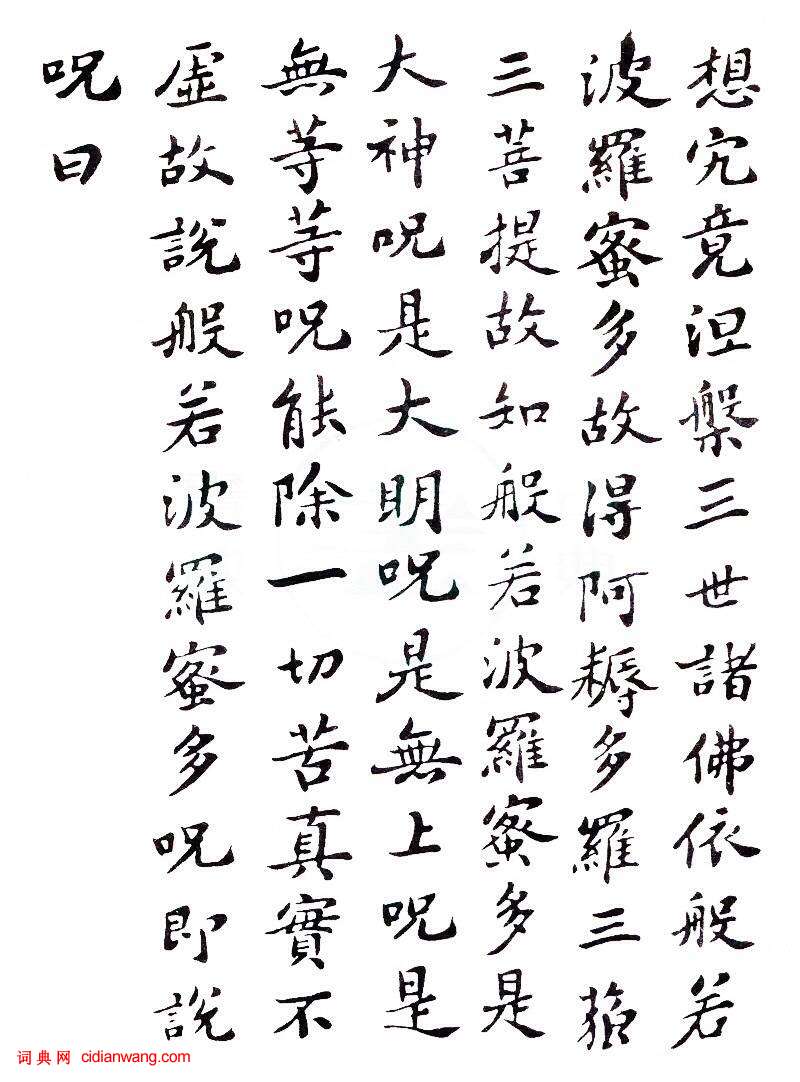 想究竟涅槃三世諸佛依般若
波羅蜜多故得阿耨多羅三藐
三菩提故知般若波羅蜜多是
大神呪是大明呪是無上呪是
無等等呪能除一切苦真實不
虛故說般若波羅蜜多呪即說
呪曰
词典网 cidianwang.com